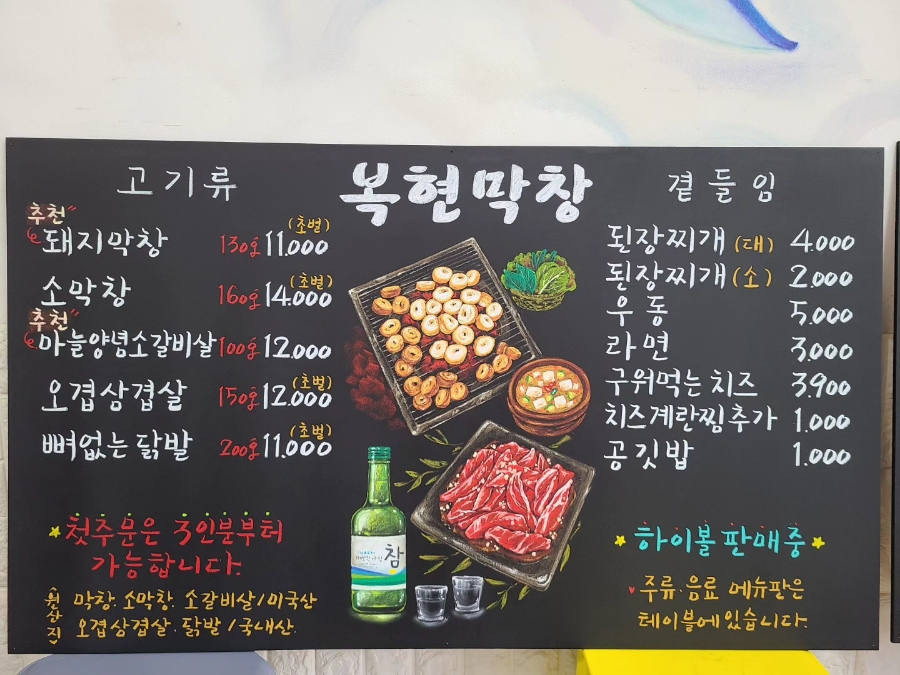 복현막창
고기류
추천"
돼지막창 130g 11.000 (초벌)
소막창 160g 14.000 (초벌)
추천"
마늘양념소갈비살 100g 12.000
오겹삼겹살 150g 12.000 (초벌)
뼈없는 닭발 200g 11.000 (초벌)
첫주문은 3인분부터
가능합니다.
원산지
막창. 소막창. 소갈비살/미국산
오겹삼겹살. 닭발/국내산.
참
곁들임
된장찌개 (대) 4.000
된장찌개 (소) 2.000
우동 5.000
라면 3.000
구워먹는 치즈 3.900
치즈계란찜추가 1.000
공깃밥 1.000
하이볼 판매중
주류.음료 메뉴판은
테이블에 있습니다.